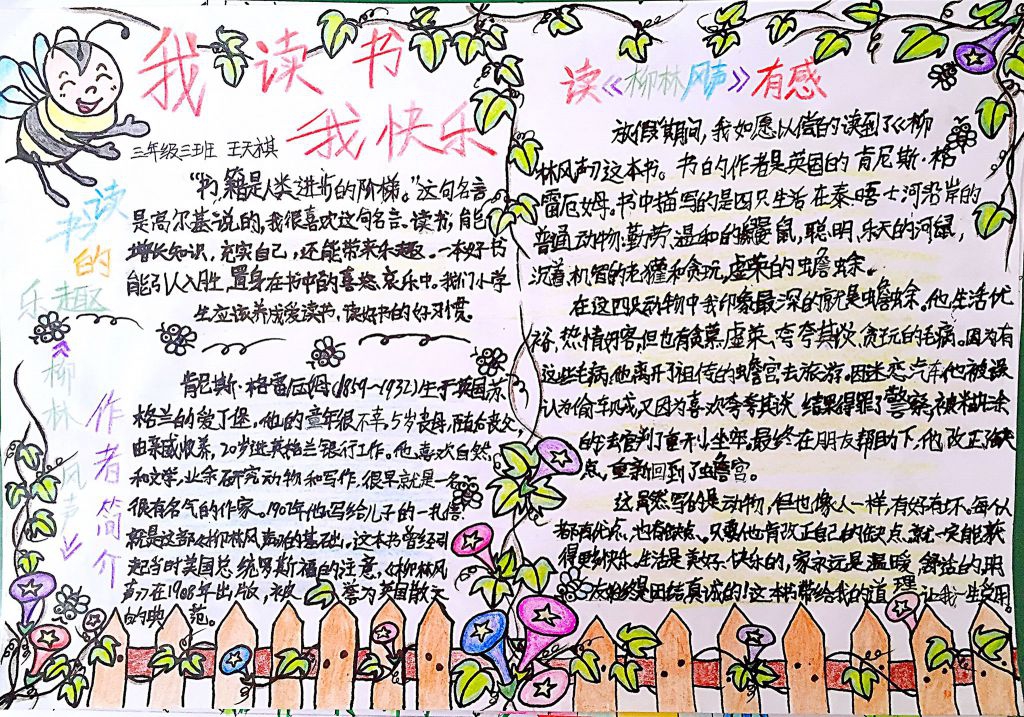 我读书
我快乐
三年级三班 王天祺
读书的
乐趣
“书籍是人类进步的阶梯。”这句名言
是高尔基说的,我很喜欢这句名言。读书,能
增长知识,充实自己,还能带来乐趣。一本好书
能引人入胜,置身在书中的喜怒哀乐中。我们小学
生应该养成爱读书,读好书的好习惯。
《柳林风声》
作者简介
肯尼斯·格雷厄姆(1859~1932)生于英国苏
格兰的爱丁堡,他的童年很不幸,5岁丧母,随后丧父,
由亲戚收养,20岁进英格兰银行工作。他喜欢自然
和文学,业余研究动物和写作,很早就是一名
很有名气的作家。1907年他写给儿子的一扎信,
就是这部《柳林风声》的基础。这本书曾经引
起当时美国总统罗斯福的注意。《柳林风
声》在1908年出版,被誉为英国散文
的典范。
读《柳林风声》有感
放假期间,我如愿以偿的读到了《柳
林风声》这本书。书的作者是英国的肯尼斯·格
雷厄姆。书中描写的是四只生活在泰晤士河沿岸的
普通动物:勤劳、温和的鼹鼠,聪明、乐天的河鼠,
沉着、机智的老獾和贪玩、虚荣的蟾蜍。
在这四只动物中我印象最深的就是蟾蜍。他生活优
裕,热情好客,但也有贪慕虚荣、夸夸其谈、贪玩的毛病。因为有
这些毛病,他离开了祖传的蟾宫去旅游。因迷恋汽车,他被误
认为偷车贼,又因为喜欢夸夸其谈,结果得罪了警察,被糊涂
的法官判了重刑,坐牢。最终在朋友帮助下,他改正缺
点,重新回到了蟾宫。
这虽然写的是动物,但也像人一样,有好有坏。每个人
都有优点,也有缺点。只要他肯改正自己的缺点,就一定能获
得更多快乐。生活是美好、快乐的,家永远是温暖、舒适的,朋
友始终是团结真诚的!这本书带给我的道理让我一生受用。